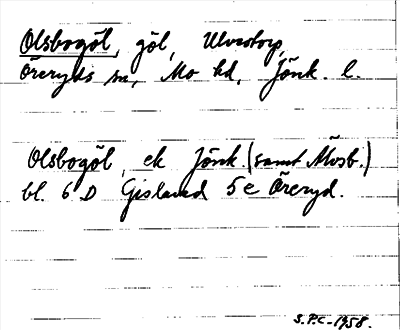 Olsbogöl, göl, Ulvstorp,
Öreryds sn, Mo hd, Jönk. l.
Olsbogöl, ek Jönk. (samt Älvsb.)
bl. 6 D Gislaved 5e Öreryd.
S.P.C-1958.